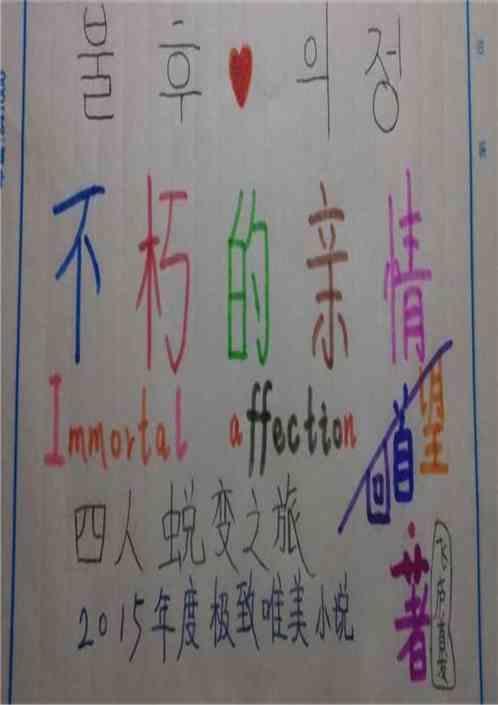 불후♥의정
不朽的亲情
Immortal affection
回首望
四人蜕变之旅
·著
2015年度极致唯美小说